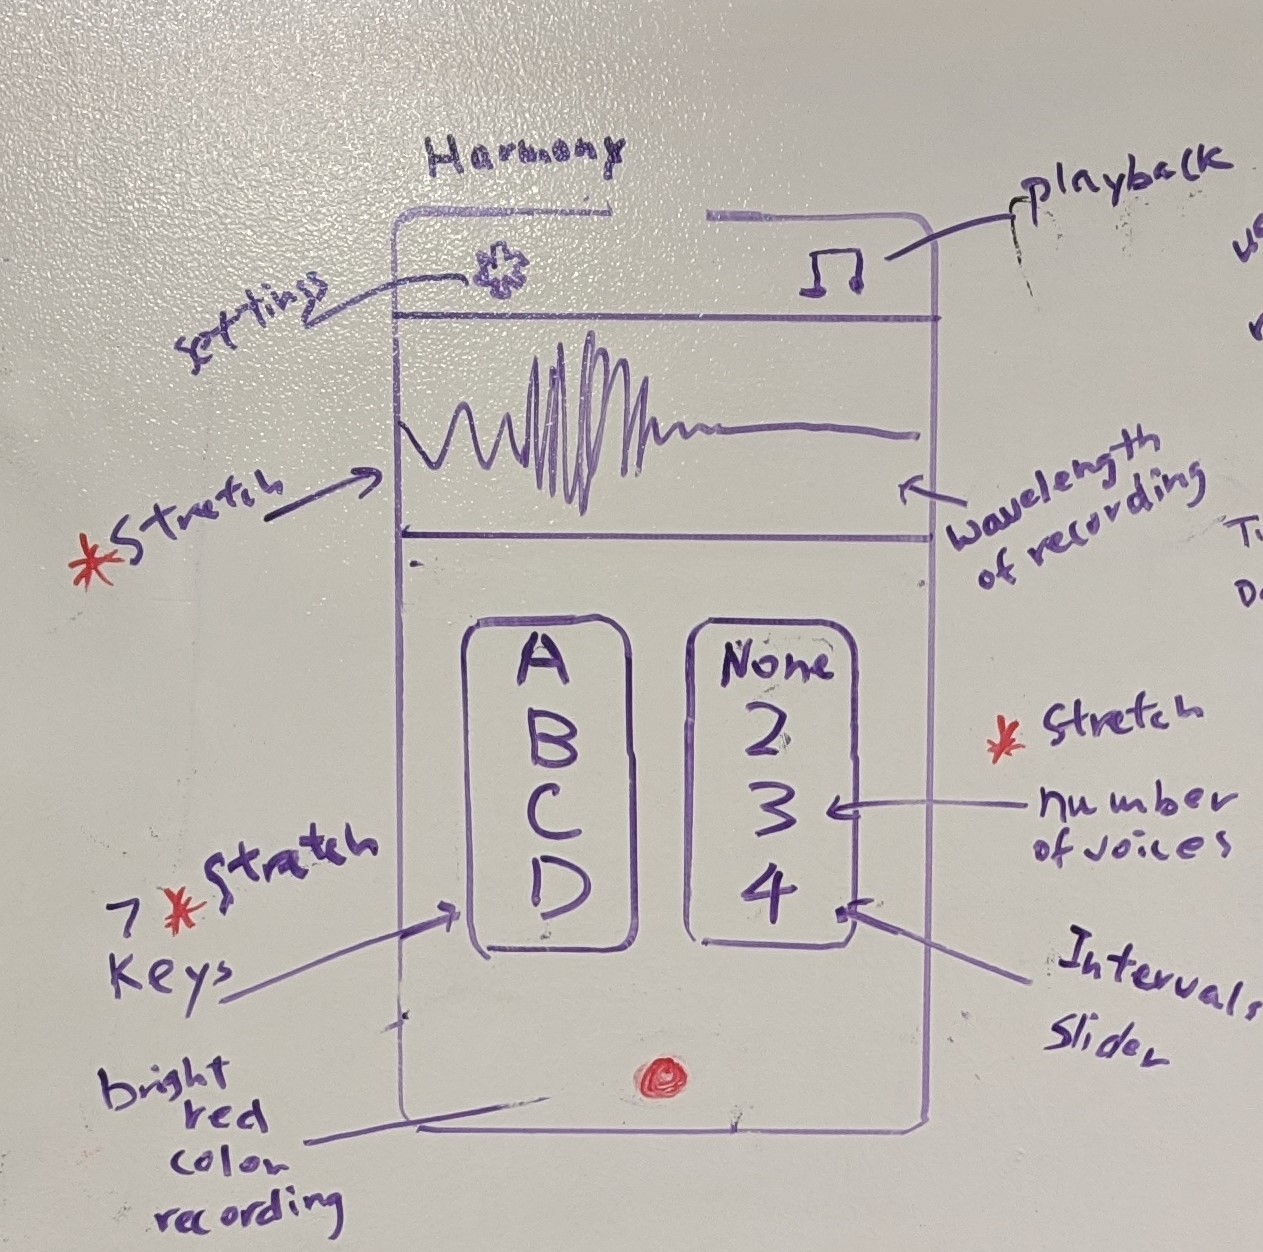 Harmony
playback
settings
* Stretch
wavelength
of recording
A
B
C
D
None
2
3
4
* Stretch
number
of voices
7 * Stretch
Keys
Intervals
Slider
bright
red
color
recording